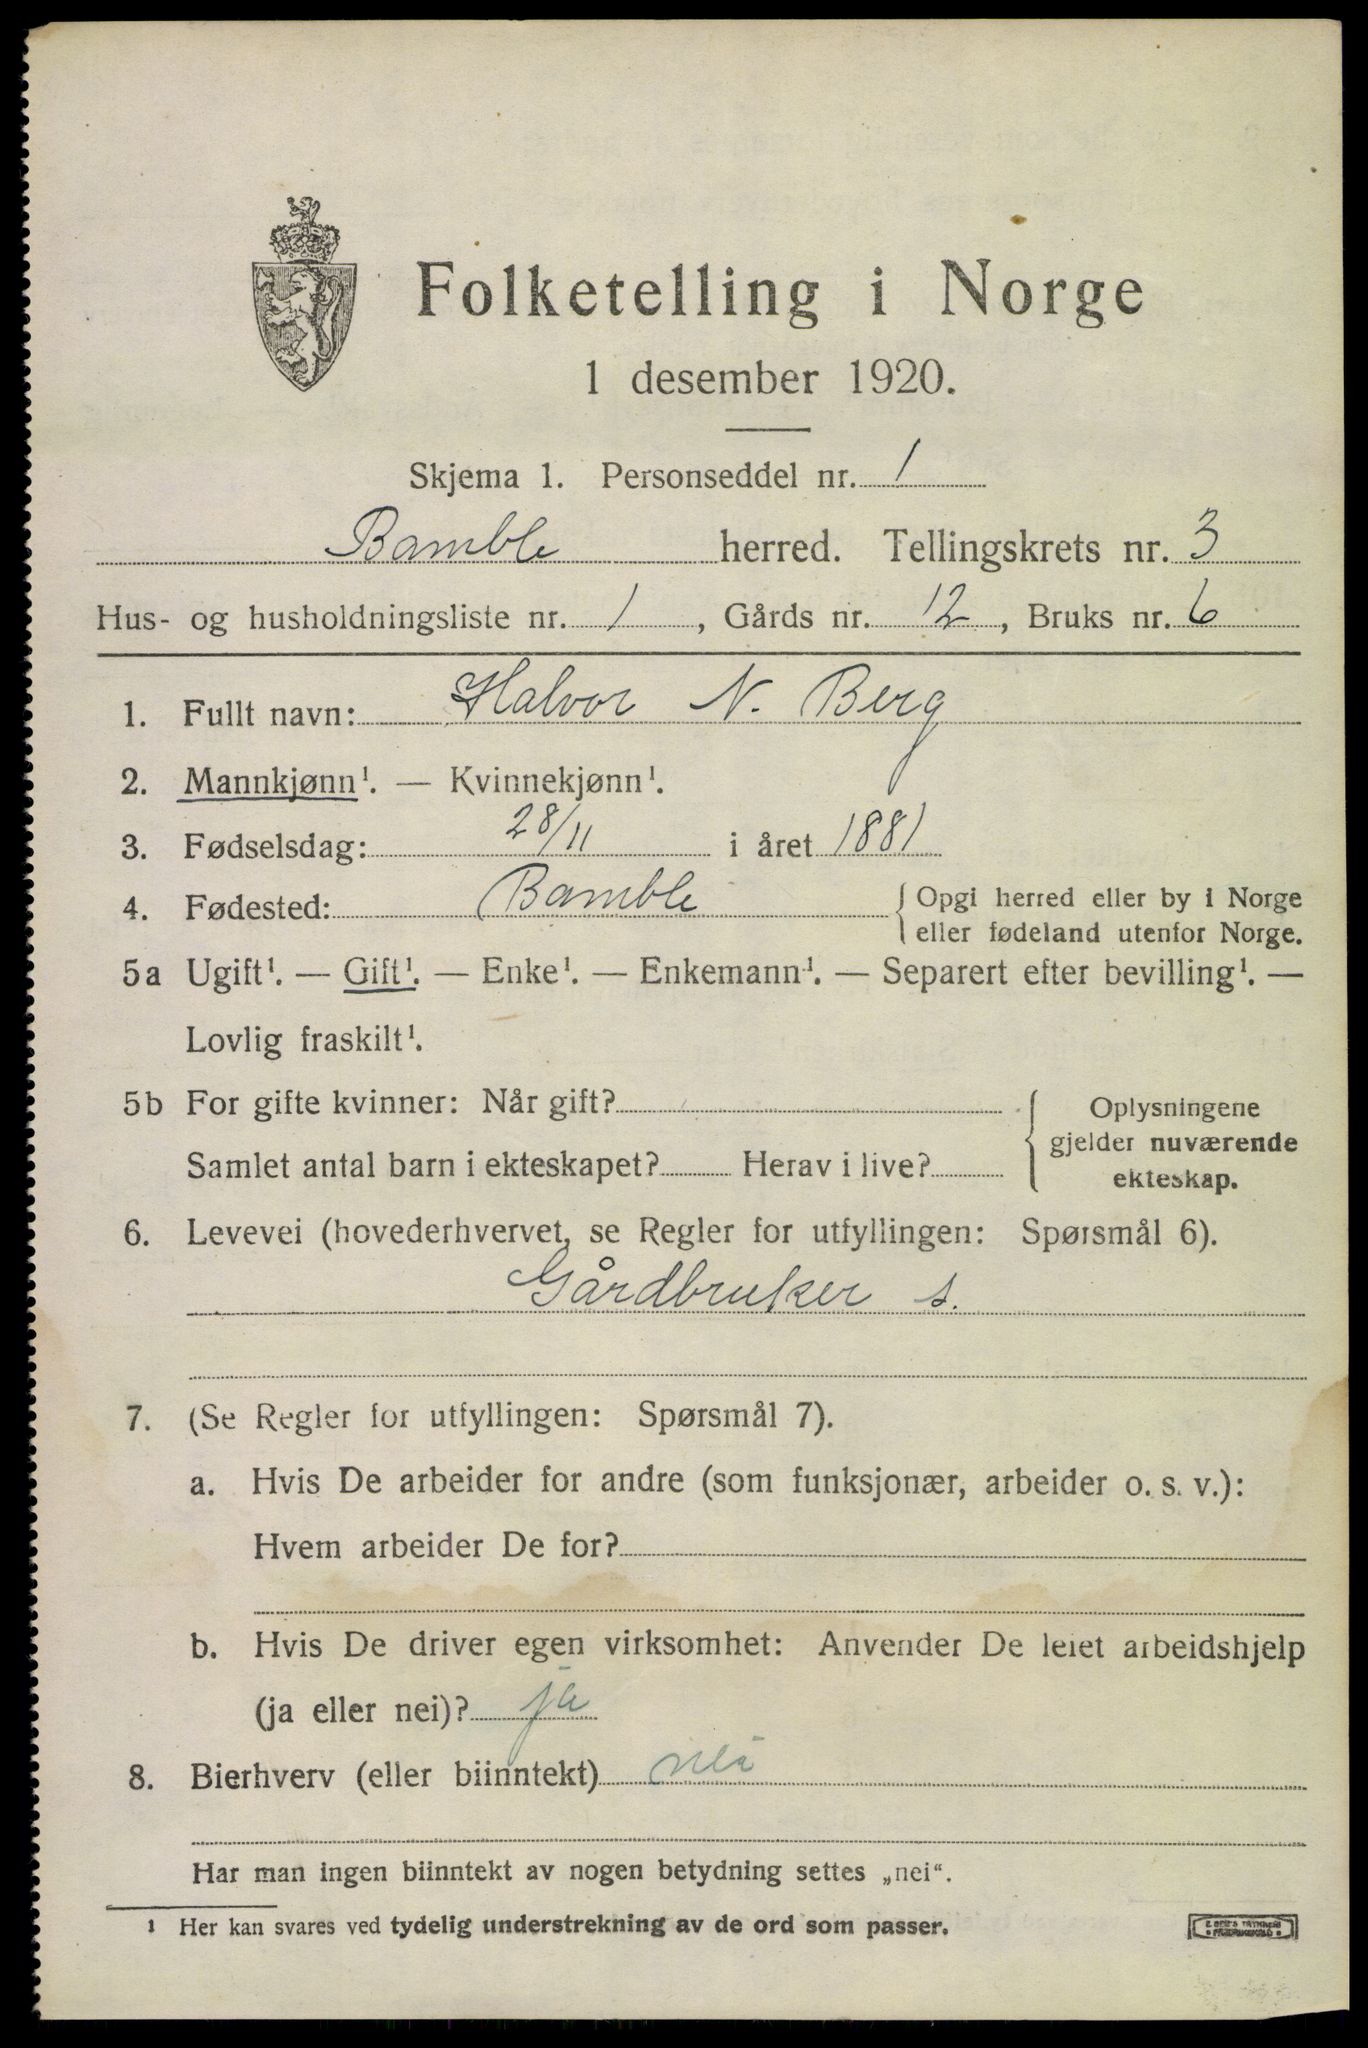 Folketelling i Norge
1 desember 1920.
Skjema 1. Personseddel nr. 1
Bamble herred. Tellingskrets nr. 3
Hus- og husholdningsliste nr. 1, Gårds nr. 12, Bruks nr. 6
1. Fullt navn: Halvor N. Berg
2. Mannkjønn¹. — Kvinnekjønn¹.
3. Fødselsdag: 28/11 i året 1881
4. Fødested: Bamble { Opgi herred eller by i Norge
eller fødeland utenfor Norge.
5a Ugift¹. — Gift¹. — Enke¹. — Enkemann¹. — Separert efter bevilling¹. —
Lovlig fraskilt¹.
5b For gifte kvinner: Når gift?
Samlet antal barn i ekteskapet? Herav i live?
Oplysningene
gjelder nuværende
ekteskap.
6. Levevei (hovederhvervet, se Regler for utfyllingen: Spørsmål 6).
Gårdbruker s.
7. (Se Regler for utfyllingen: Spørsmål 7).
a. Hvis De arbeider for andre (som funksjonær, arbeider o. s. v.):
Hvem arbeider De for?
b. Hvis De driver egen virksomhet: Anvender De leiet arbeidshjelp
(ja eller nei)? ja
8. Bierhverv (eller biinntekt) nei
Har man ingen biinntekt av nogen betydning settes „nei“.
1 Her kan svares ved tydelig understrekning av de ord som passer.